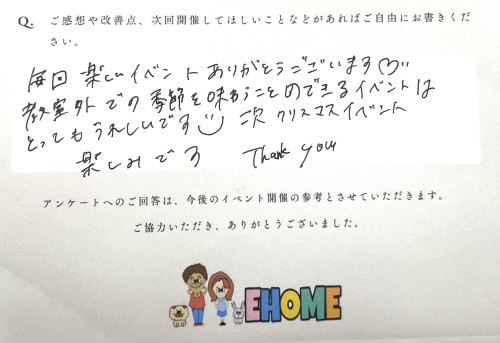 Q. ご感想や改善点、次回開催してほしいことなどがあればご自由にお書きくだ
さい。
毎回 楽しいイベント ありがとうございます♡
教室外での季節を味わうことのできるイベントは
とってもうれしいです 次 クリスマスイベント
楽しみです Thank you
アンケートへのご回答は、今後のイベント開催の参考とさせていただきます。
ご協力いただき、ありがとうございました。
EHOME